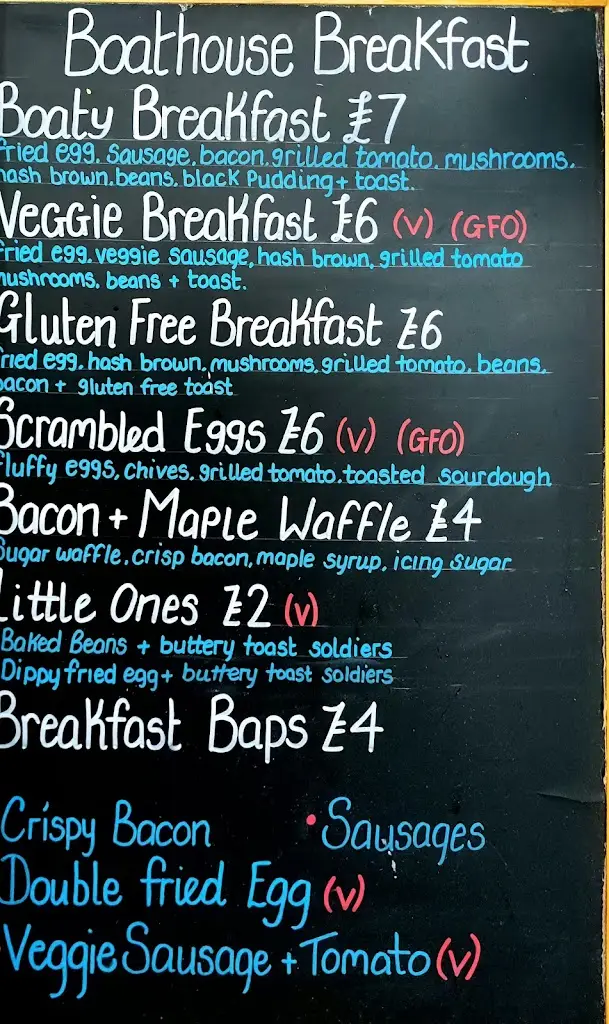 Boathouse Breakfast
Boaty Breakfast £7
fried egg. Sausage. bacon. grilled tomato. mushrooms.
hash brown. beans. black Pudding + toast.
Veggie Breakfast £6 (v) (GFO)
fried egg. veggie sausage, hash brown, grilled tomato
mushrooms. beans + toast.
Gluten Free Breakfast £6
fried egg. hash brown, mushrooms. grilled tomato. beans.
bacon + gluten free toast
Scrambled Eggs £6 (v) (GFO)
fluffy eggs, chives. grilled tomato. toasted sourdough
Bacon + Maple Waffle £4
Sugar waffle. crisp bacon, maple syrup, icing sugar
Little Ones £2 (v)
Baked Beans + buttery toast soldiers
Dippy fried egg + buttery toast soldiers
Breakfast Baps £4
Crispy Bacon • Sausages
Double fried Egg (v)
Veggie Sausage + Tomato (v)